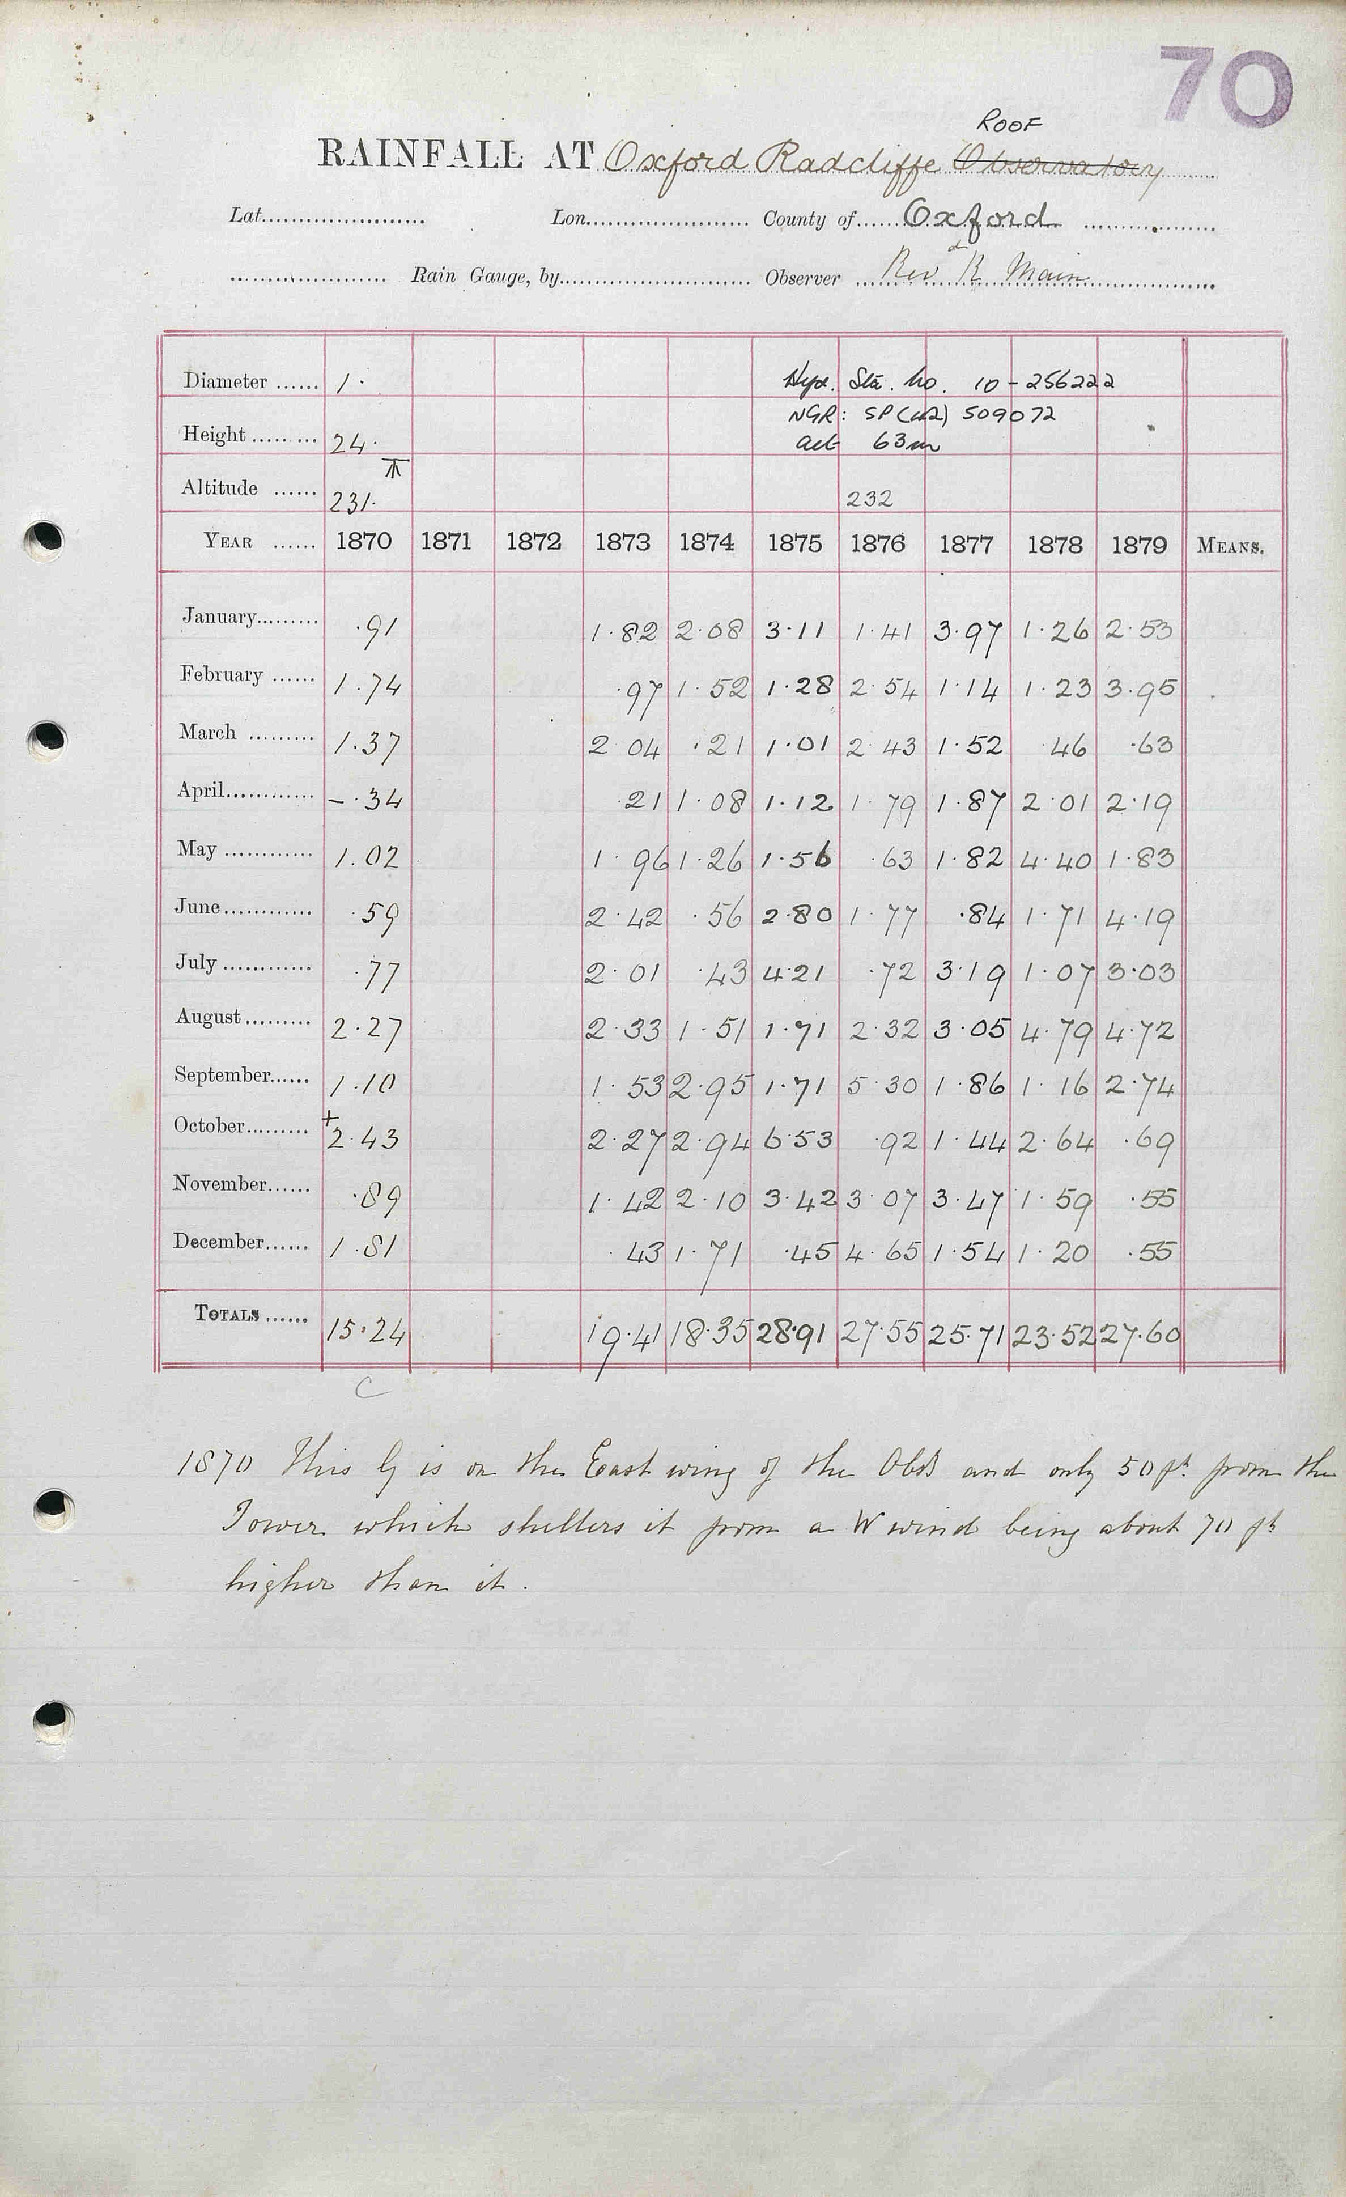 70
ROOF
RAINFALL AT Oxford Radcliffe Observatory
Lat. Lon. County of Oxford
Rain Gauge, by Observer Rev^d R Main
Diameter ...... 1· Hyd. Sta. No. 10-256222
NGR: SP(42) 509072
Height ...... 24· alt 63m
Altitude ...... 231· 232
YEAR ...... 1870 1871 1872 1873 1874 1875 1876 1877 1878 1879 MEANS.
January ·91 1·82 2·08 3·11 1·41 3·97 1·26 2·53
February 1·74 ·97 1·52 1·28 2·54 1·14 1·23 3·95
March 1·37 2 04 ·21 1·01 2·43 1·52 46 ·63
April -·34 21 1·08 1·12 1·79 1·87 2·01 2·19
May 1·02 1·96 1·26 1·56 ·63 1·82 4·40 1·83
June ·59 2·42 ·56 2·80 1·77 ·84 1·71 4·19
July ·77 2·01 ·43 4·21 ·72 3·19 1·07 3·03
August 2·27 2·33 1·51 1·71 2·32 3·05 4·79 4·72
September 1·10 1·53 2·95 1·71 5·30 1·86 1·16 2·74
October +2·43 2·27 2·94 6·53 ·92 1·44 2·64 ·69
November ·89 1·42 2·10 3·42 3·07 3·47 1·59 ·55
December 1·81 ·43 1·71 ·45 4·65 1·54 1·20 ·55
TOTALS 15·24 19·41 18·35 28·91 27·55 25·71 23·52 27·60
C
1870 This G is on the East wing of the Obs and only 50 ft from the
Tower which shelters it from a W wind being about 70 ft
higher than it.